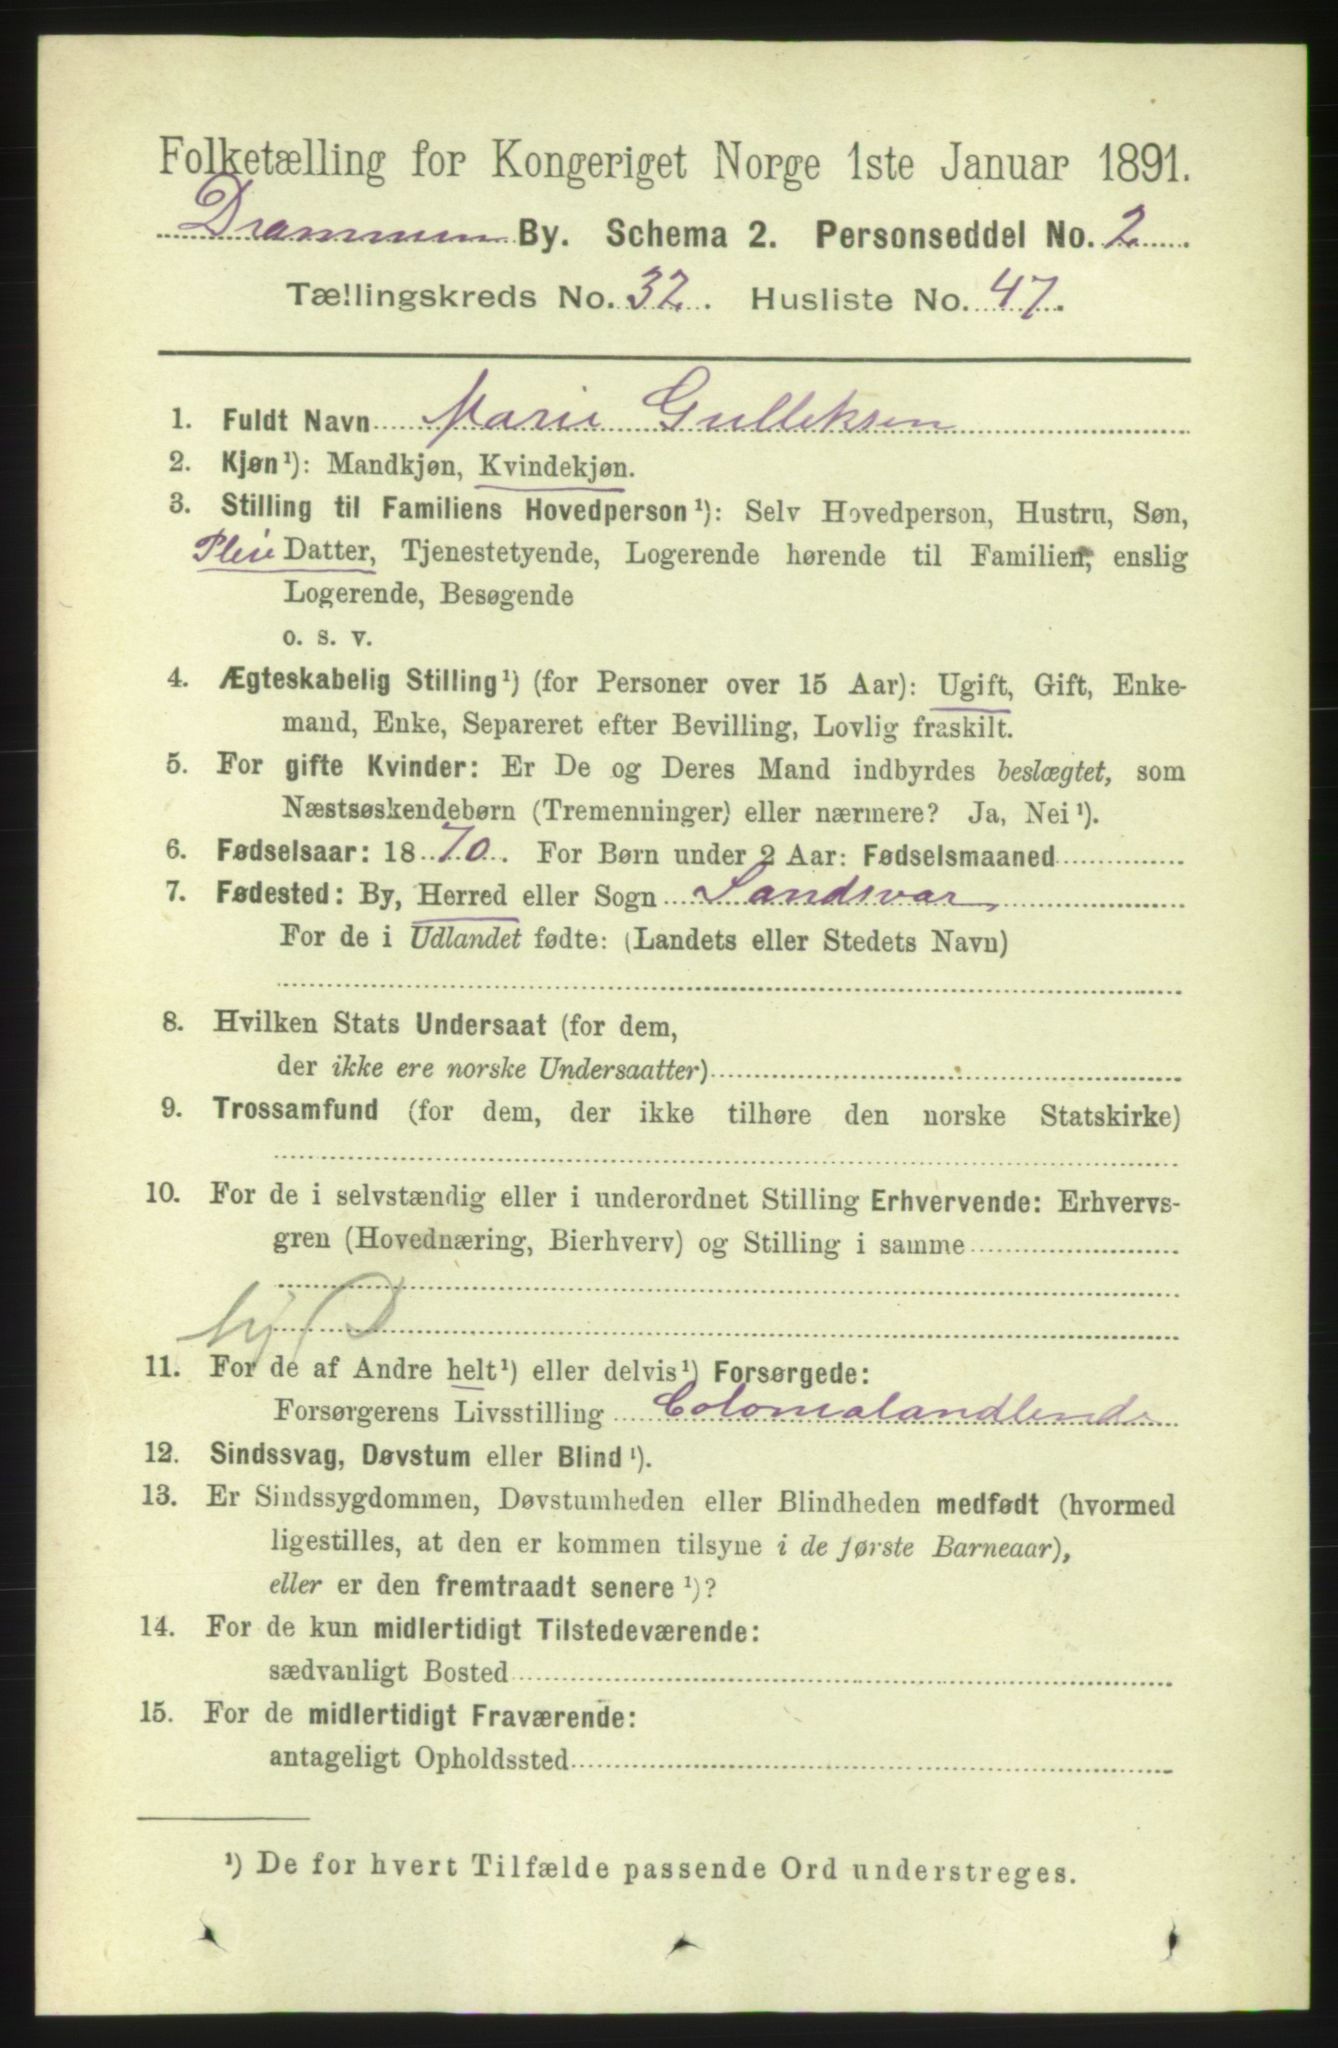 Folketælling for Kongeriget Norge 1ste Januar 1891.
Drammen By. Schema 2. Personseddel No. 2
Tællingskreds No. 32. Husliste No. 47.
1. Fuldt Navn Marie Gulleksen
2. Kjøn¹): Mandkjøn, Kvindekjøn.
3. Stilling til Familiens Hovedperson¹): Selv Hovedperson, Hustru, Søn,
Pleie Datter, Tjenestetyende, Logerende hørende til Familien, enslig
Logerende, Besøgende
o. s. v.
4. Ægteskabelig Stilling¹) (for Personer over 15 Aar): Ugift, Gift, Enke-
mand, Enke, Separeret efter Bevilling, Lovlig fraskilt.
5. For gifte Kvinder: Er De og Deres Mand indbyrdes beslægtet, som
Næstsøskendebørn (Tremenninger) eller nærmere? Ja, Nei¹).
6. Fødselsaar: 1870. For Børn under 2 Aar: Fødselsmaaned
7. Fødested: By, Herred eller Sogn Sandsvær
For de i Udlandet fødte: (Landets eller Stedets Navn)
8. Hvilken Stats Undersaat (for dem,
der ikke ere norske Undersaatter)
9. Trossamfund (for dem, der ikke tilhøre den norske Statskirke)
10. For de i selvstændig eller i underordnet Stilling Erhvervende: Erhvervs-
gren (Hovednæring, Bierhverv) og Stilling i samme
11. For de af Andre helt¹) eller delvis¹) Forsørgede:
Forsørgerens Livsstilling Colonialandlende
12. Sindssvag, Døvstum eller Blind¹).
13. Er Sindssygdommen, Døvstumheden eller Blindheden medfødt (hvormed
ligestilles, at den er kommen tilsyne i de første Barneaar),
eller er den fremtraadt senere¹)?
14. For de kun midlertidigt Tilstedeværende:
sædvanligt Bosted
15. For de midlertidigt Fraværende:
antageligt Opholdssted
¹) De for hvert Tilfælde passende Ord understreges.